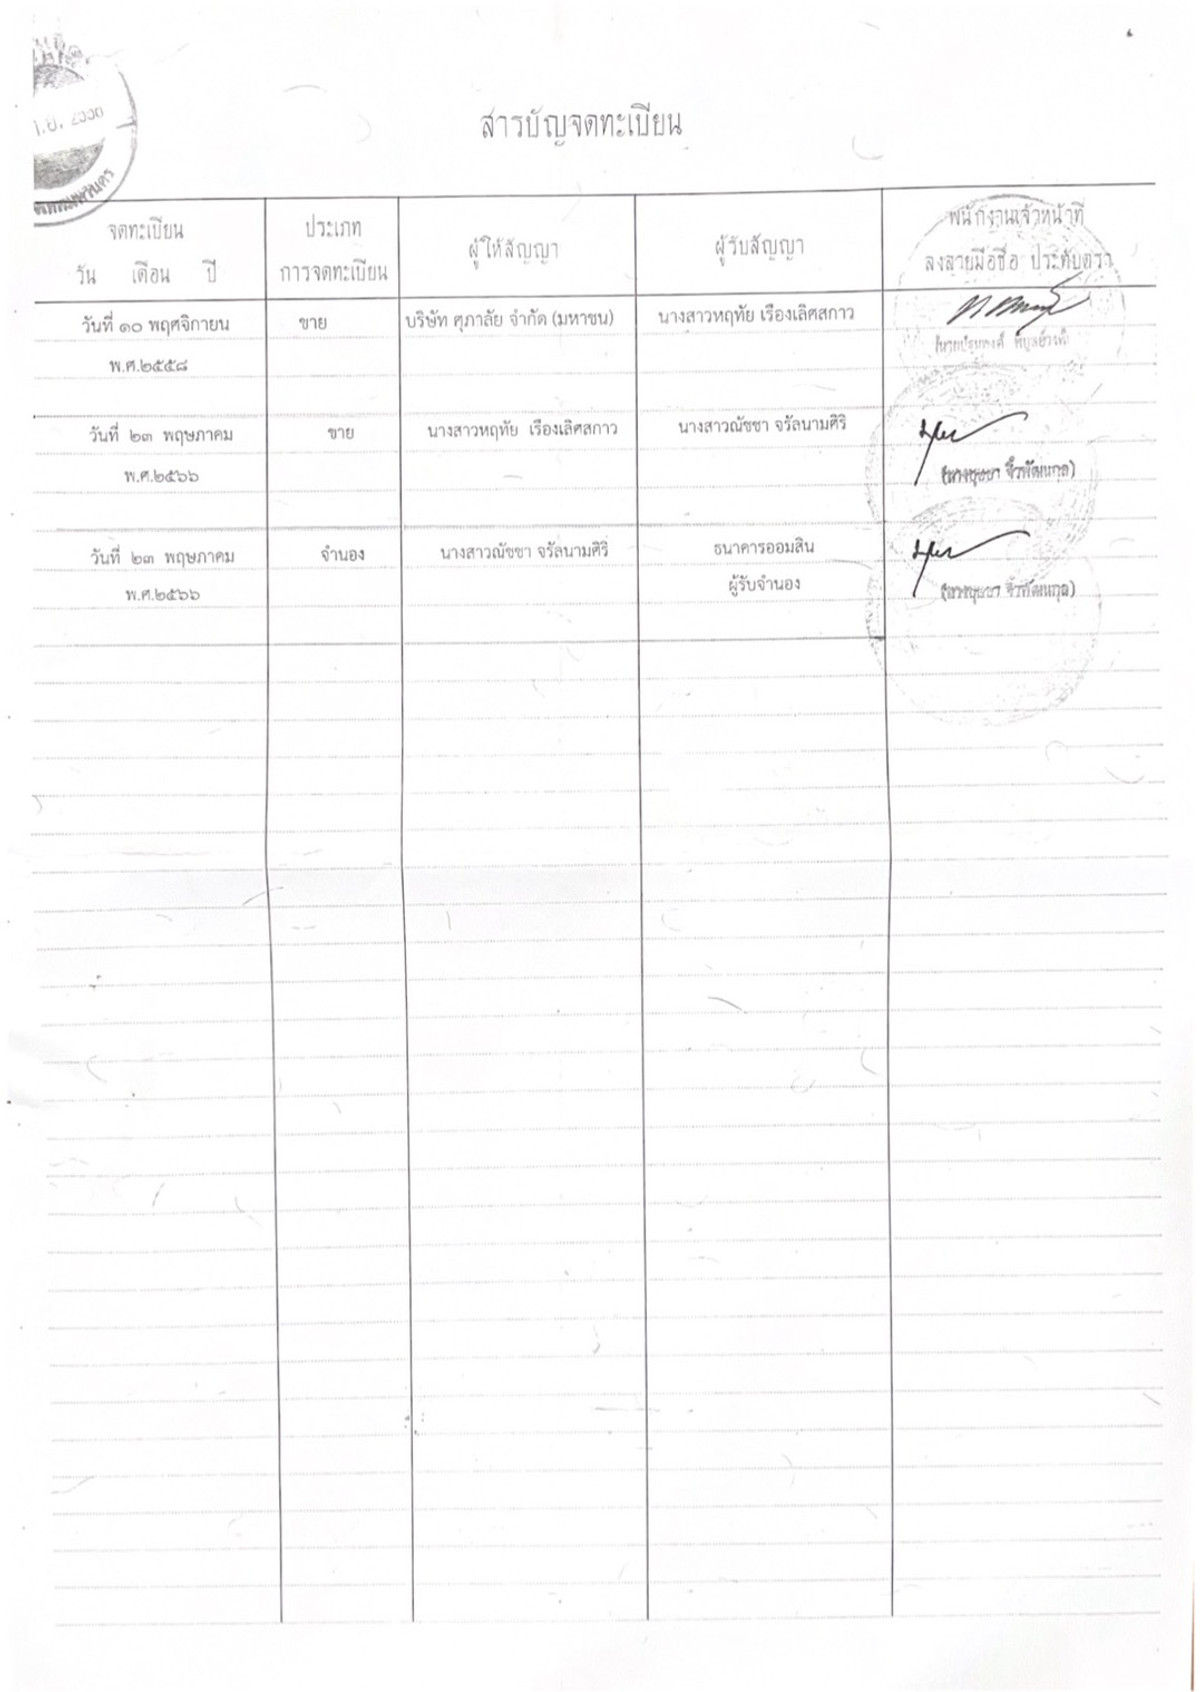 สารบัญจดทะเบียน
จดทะเบียน
วัน เดือน ปี
ประเภท
การจดทะเบียน
ผู้ให้สัญญา
ผู้รับสัญญา
พนักงานเจ้าหน้าที่
ลงลายมือชื่อ ประทับตรา
วันที่ ๑๐ พฤศจิกายน
พ.ศ.๒๕๕๘
ขาย
บริษัท ศุภาลัย จำกัด (มหาชน)
นางสาวหฤทัย เรืองเลิศสกาว
วันที่ ๒๓ พฤษภาคม
พ.ศ.๒๕๖๖
ขาย
นางสาวหฤทัย เรืองเลิศสกาว
นางสาวณัชชา จรัลนามศิริ
วันที่ ๒๓ พฤษภาคม
พ.ศ.๒๕๖๖
จำนอง
นางสาวณัชชา จรัลนามศิริ
ธนาคารออมสิน
ผู้รับจำนอง